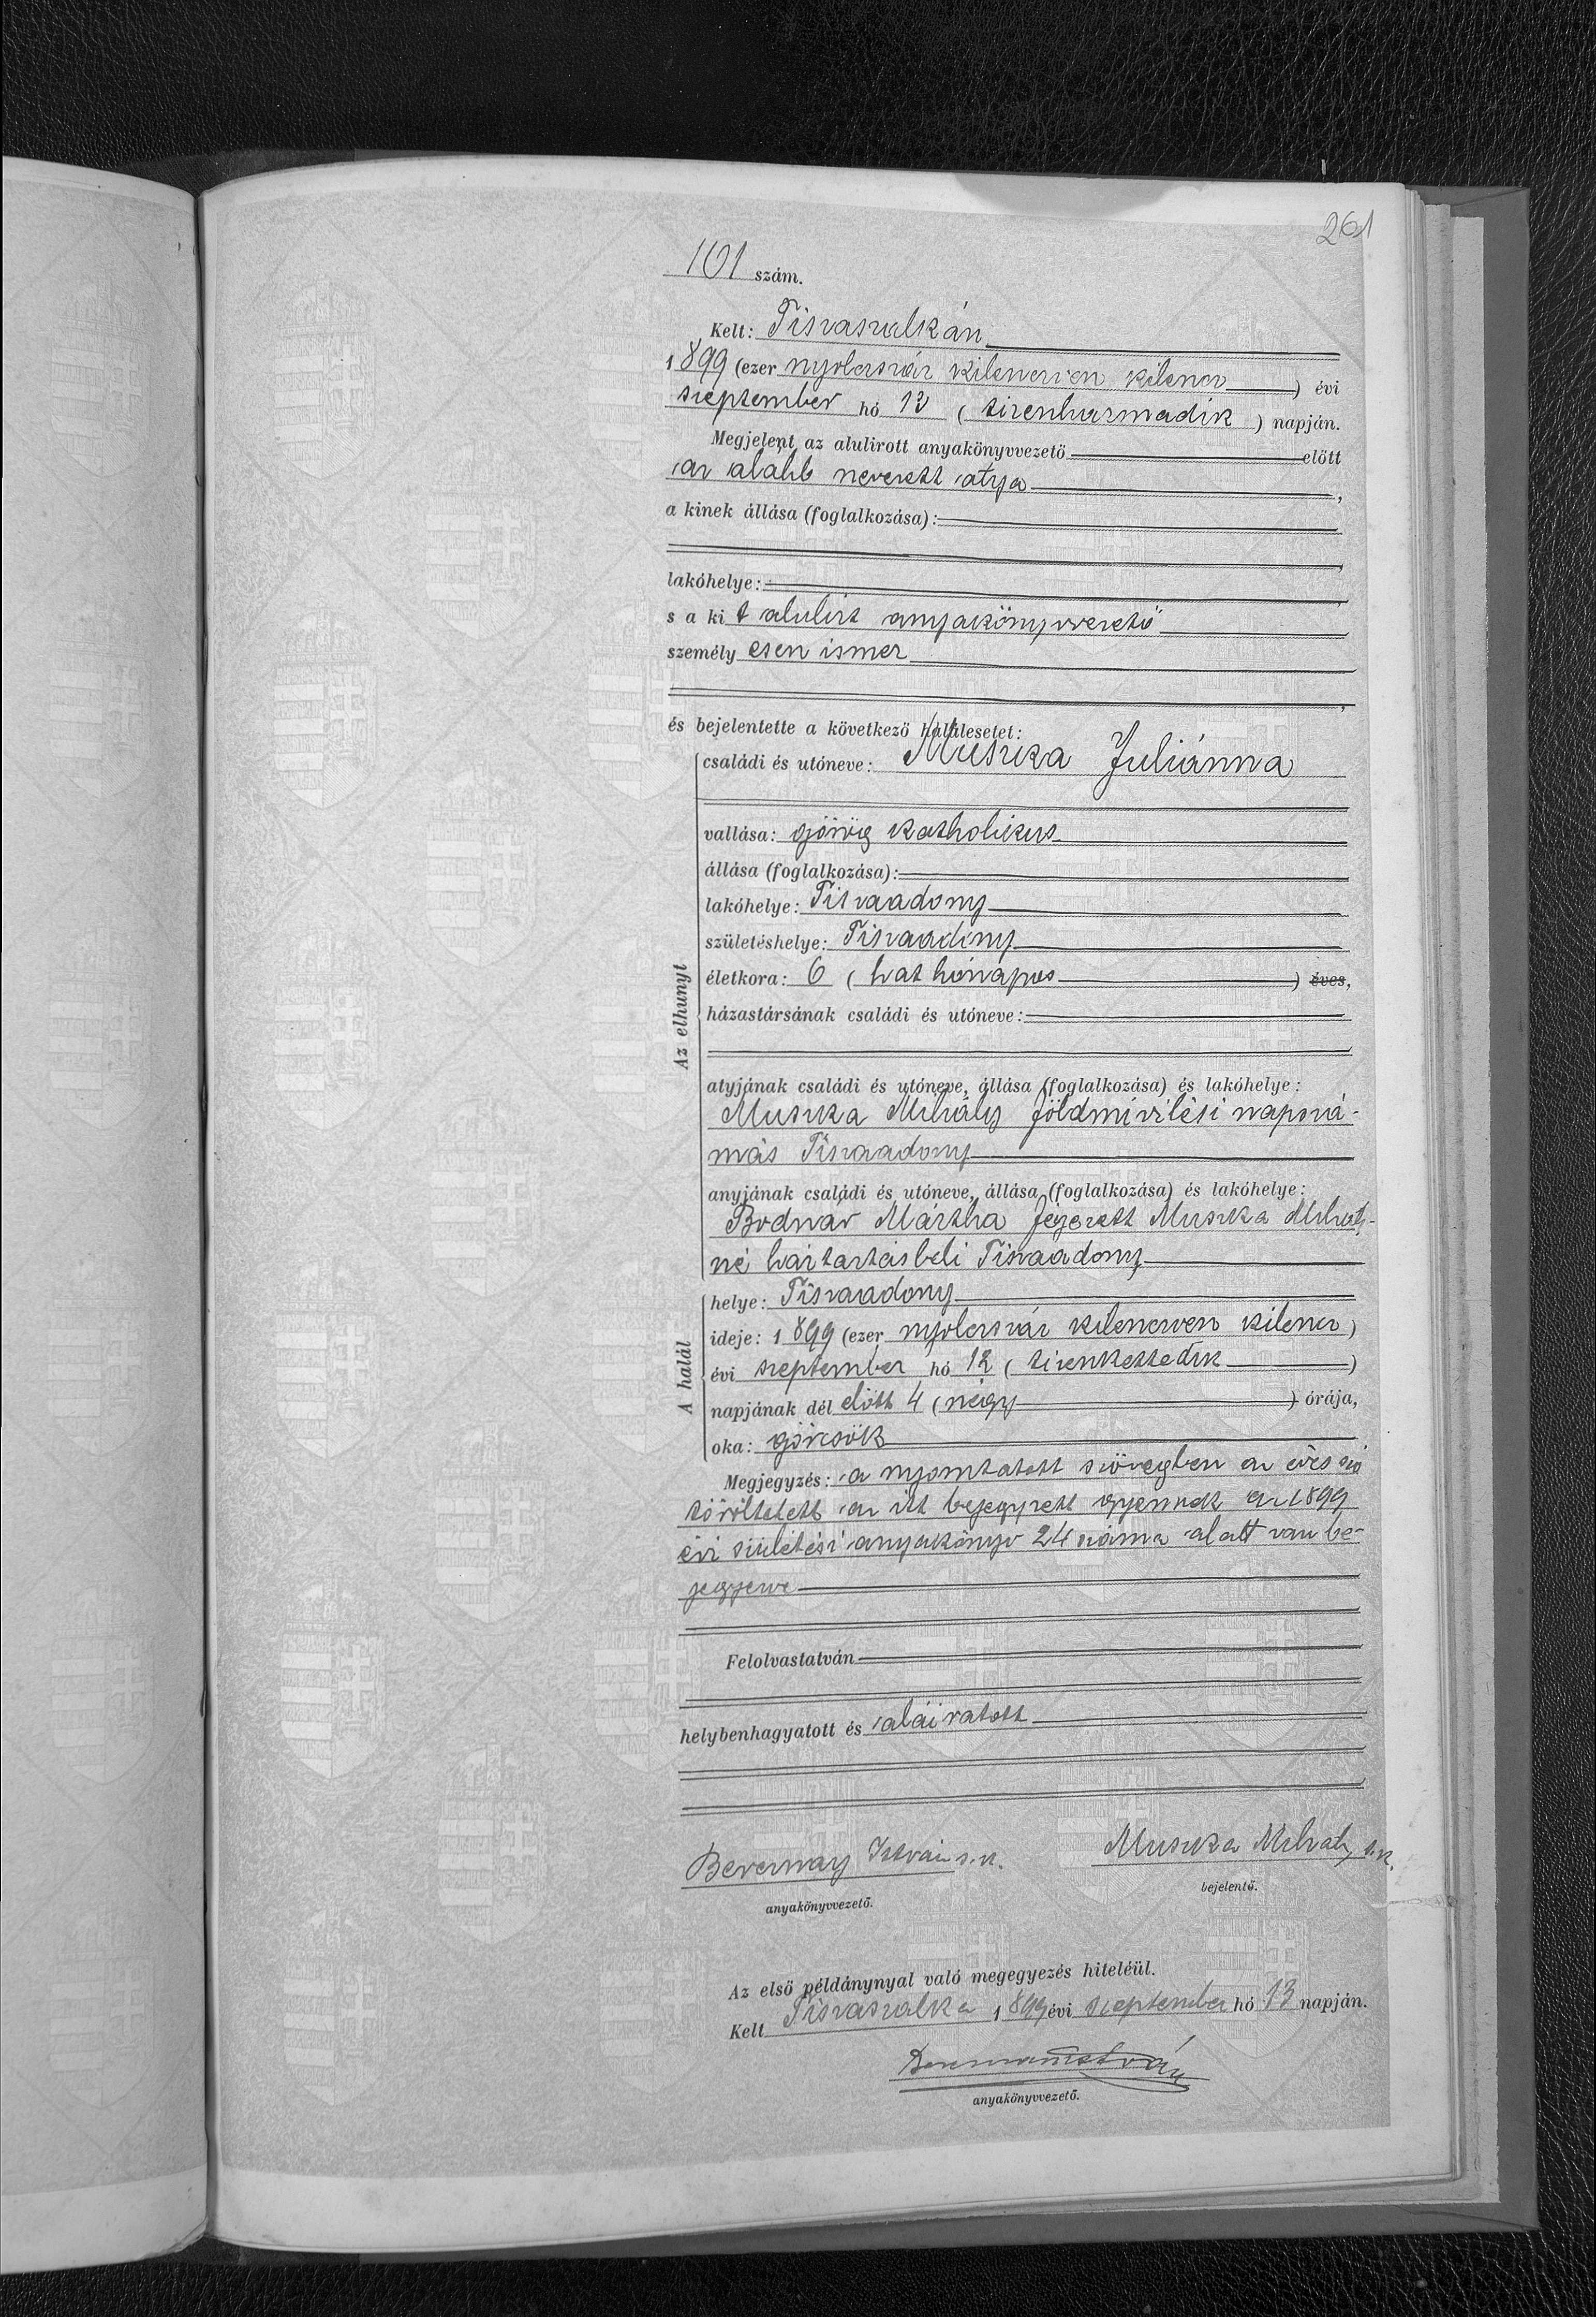 261
101 szám.
Kelt: Tiszaszalkán
1899 (ezer nyolczszáz kilenczven kilencz) évi
szeptember hó 13 (tizenharmadik) napján.
Megjelent az alulirott anyakönyvvezető előtt
az alább nevezett atya,
a kinek állása (foglalkozása):
lakóhelye:
s a kit alulirt anyakönyvvezető
személyesen ismer
és bejelentette a következő halálesetet:
családi és utóneve: Muszka Juliánna
vallása: görög katholikus
állása (foglalkozása):
lakóhelye: Tiszaadony
születéshelye: Tiszaadony
életkora: 6 (hat hónapos) éves,
házastársának családi és utóneve:
Az elhunyt
atyjának családi és utóneve, állása (foglalkozása) és lakóhelye:
Muszka Mihály földmívelési napszá-
más Tiszaadony
anyjának családi és utóneve, állása (foglalkozása) és lakóhelye:
Bodnár Mártha férjezett Muszka Mihály-
né háztartásbeli Tiszaadony
A halál
helye: Tiszaadony
ideje: 1899 (ezer nyolczszáz kilenczven kilencz)
évi szeptember hó 12 (tizenkettedik)
napjának dél előtt 4 (négy) órája,
oka: görcsök
Megjegyzés: a nyomtatott szövegben az éves szó
töröltetett az itt bejegyzett gyermek az 1899
évi születési anyakönyv 24 száma alatt van be-
jegyezve
Felolvastatván
helybenhagyatott és aláiratott
István s. k.
Muszka Mihály s. k.
anyakönyvvezető.
bejelentő.
Az első példánynyal való megegyezés hiteléül.
Kelt Tiszaszalka 1899 évi szeptember hó 13 napján.
István
anyakönyvvezető.